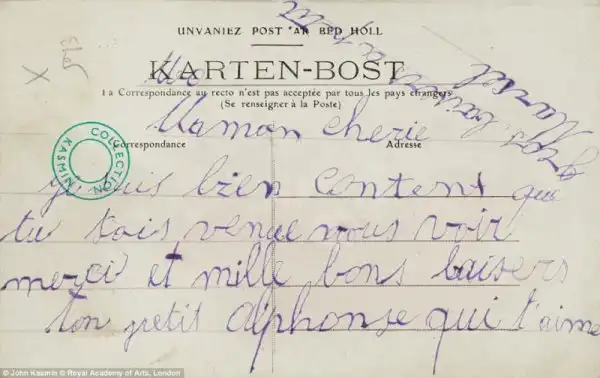 UNVANIEZ POST 'AR BED HOLL
KARTEN-BOST
La Correspondance au recto n'est pas acceptée par tous les pays étrangers
(Se renseigner à la Poste)
Correspondance
Adresse
COLLECTION
KASMIN
Ma
Maman cherie
je suis bien content que
tu sois venue nous voir
merci et mille bons baisers
ton petit alphonse qui t'aime
gros baisers
Marcel
© John Kasmin © Royal Academy of Arts, London